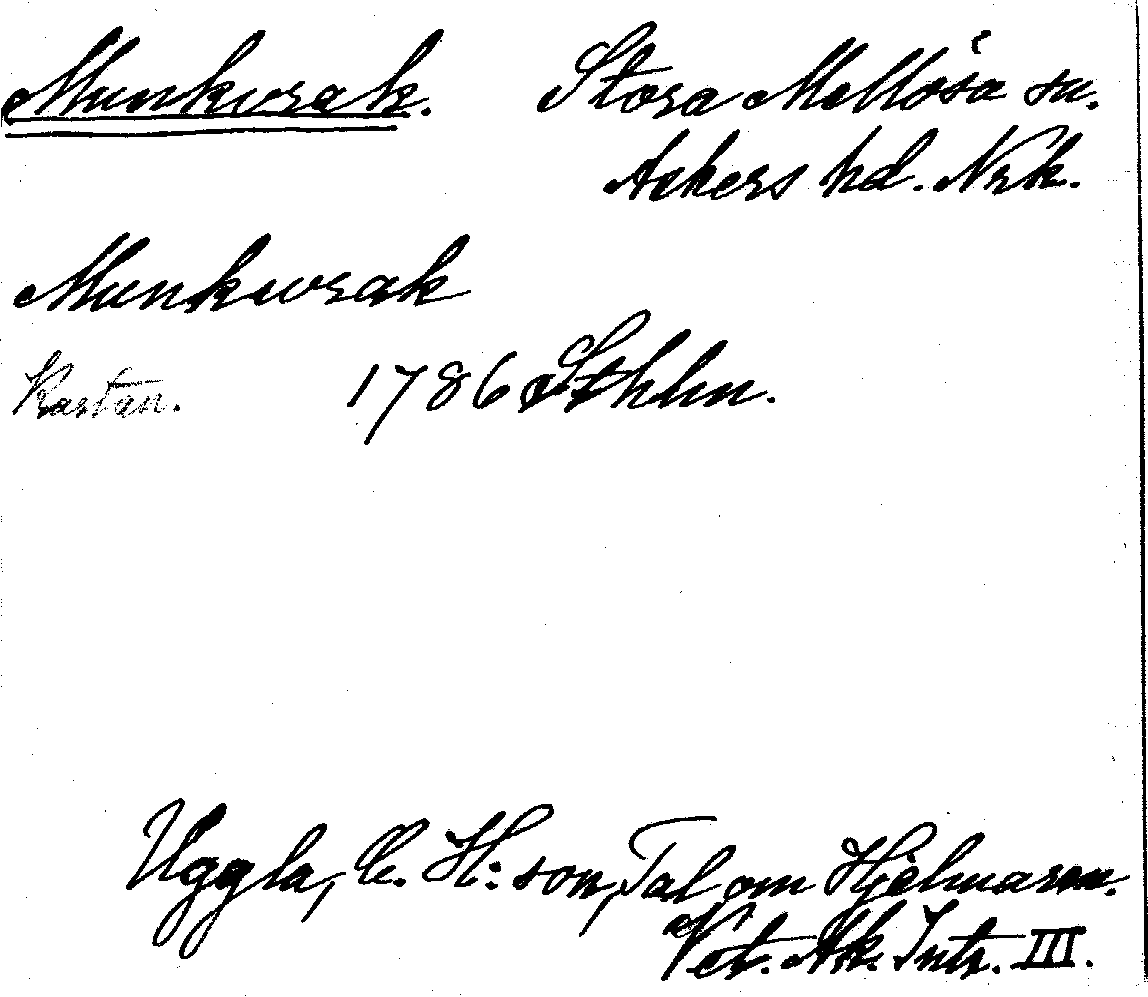 Munkvrak. Stora Mellösa sn.
Askers hd. Nrk.
Munkvrak
Kartan. 1786 Sthlm.
Uggla, C. H:son, Tal om Hjelmaren.
Vet. Ak. Intr. III.